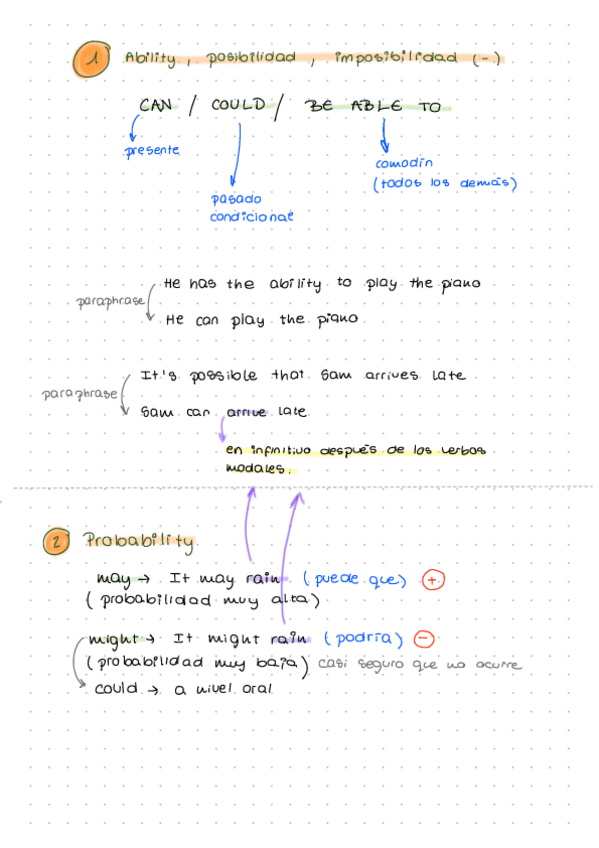 1 Ability, posibilidad, imposibilidad (-)
CAN / COULD / BE ABLE TO
presente
comodín
(todos los demás)
pasado
condicional
He has the ability to play the piano
paraphrase
He can play the piano
It's possible that Sam arrives late
paraphrase
Sam can arrive late
en infinitivo después de los verbos
modales.
2 Probability
may → It may rain (puede que) +
(probabilidad muy alta)
might → It might rain (podría) -
(probabilidad muy baja) casi seguro que no ocurre
could → a nivel oral